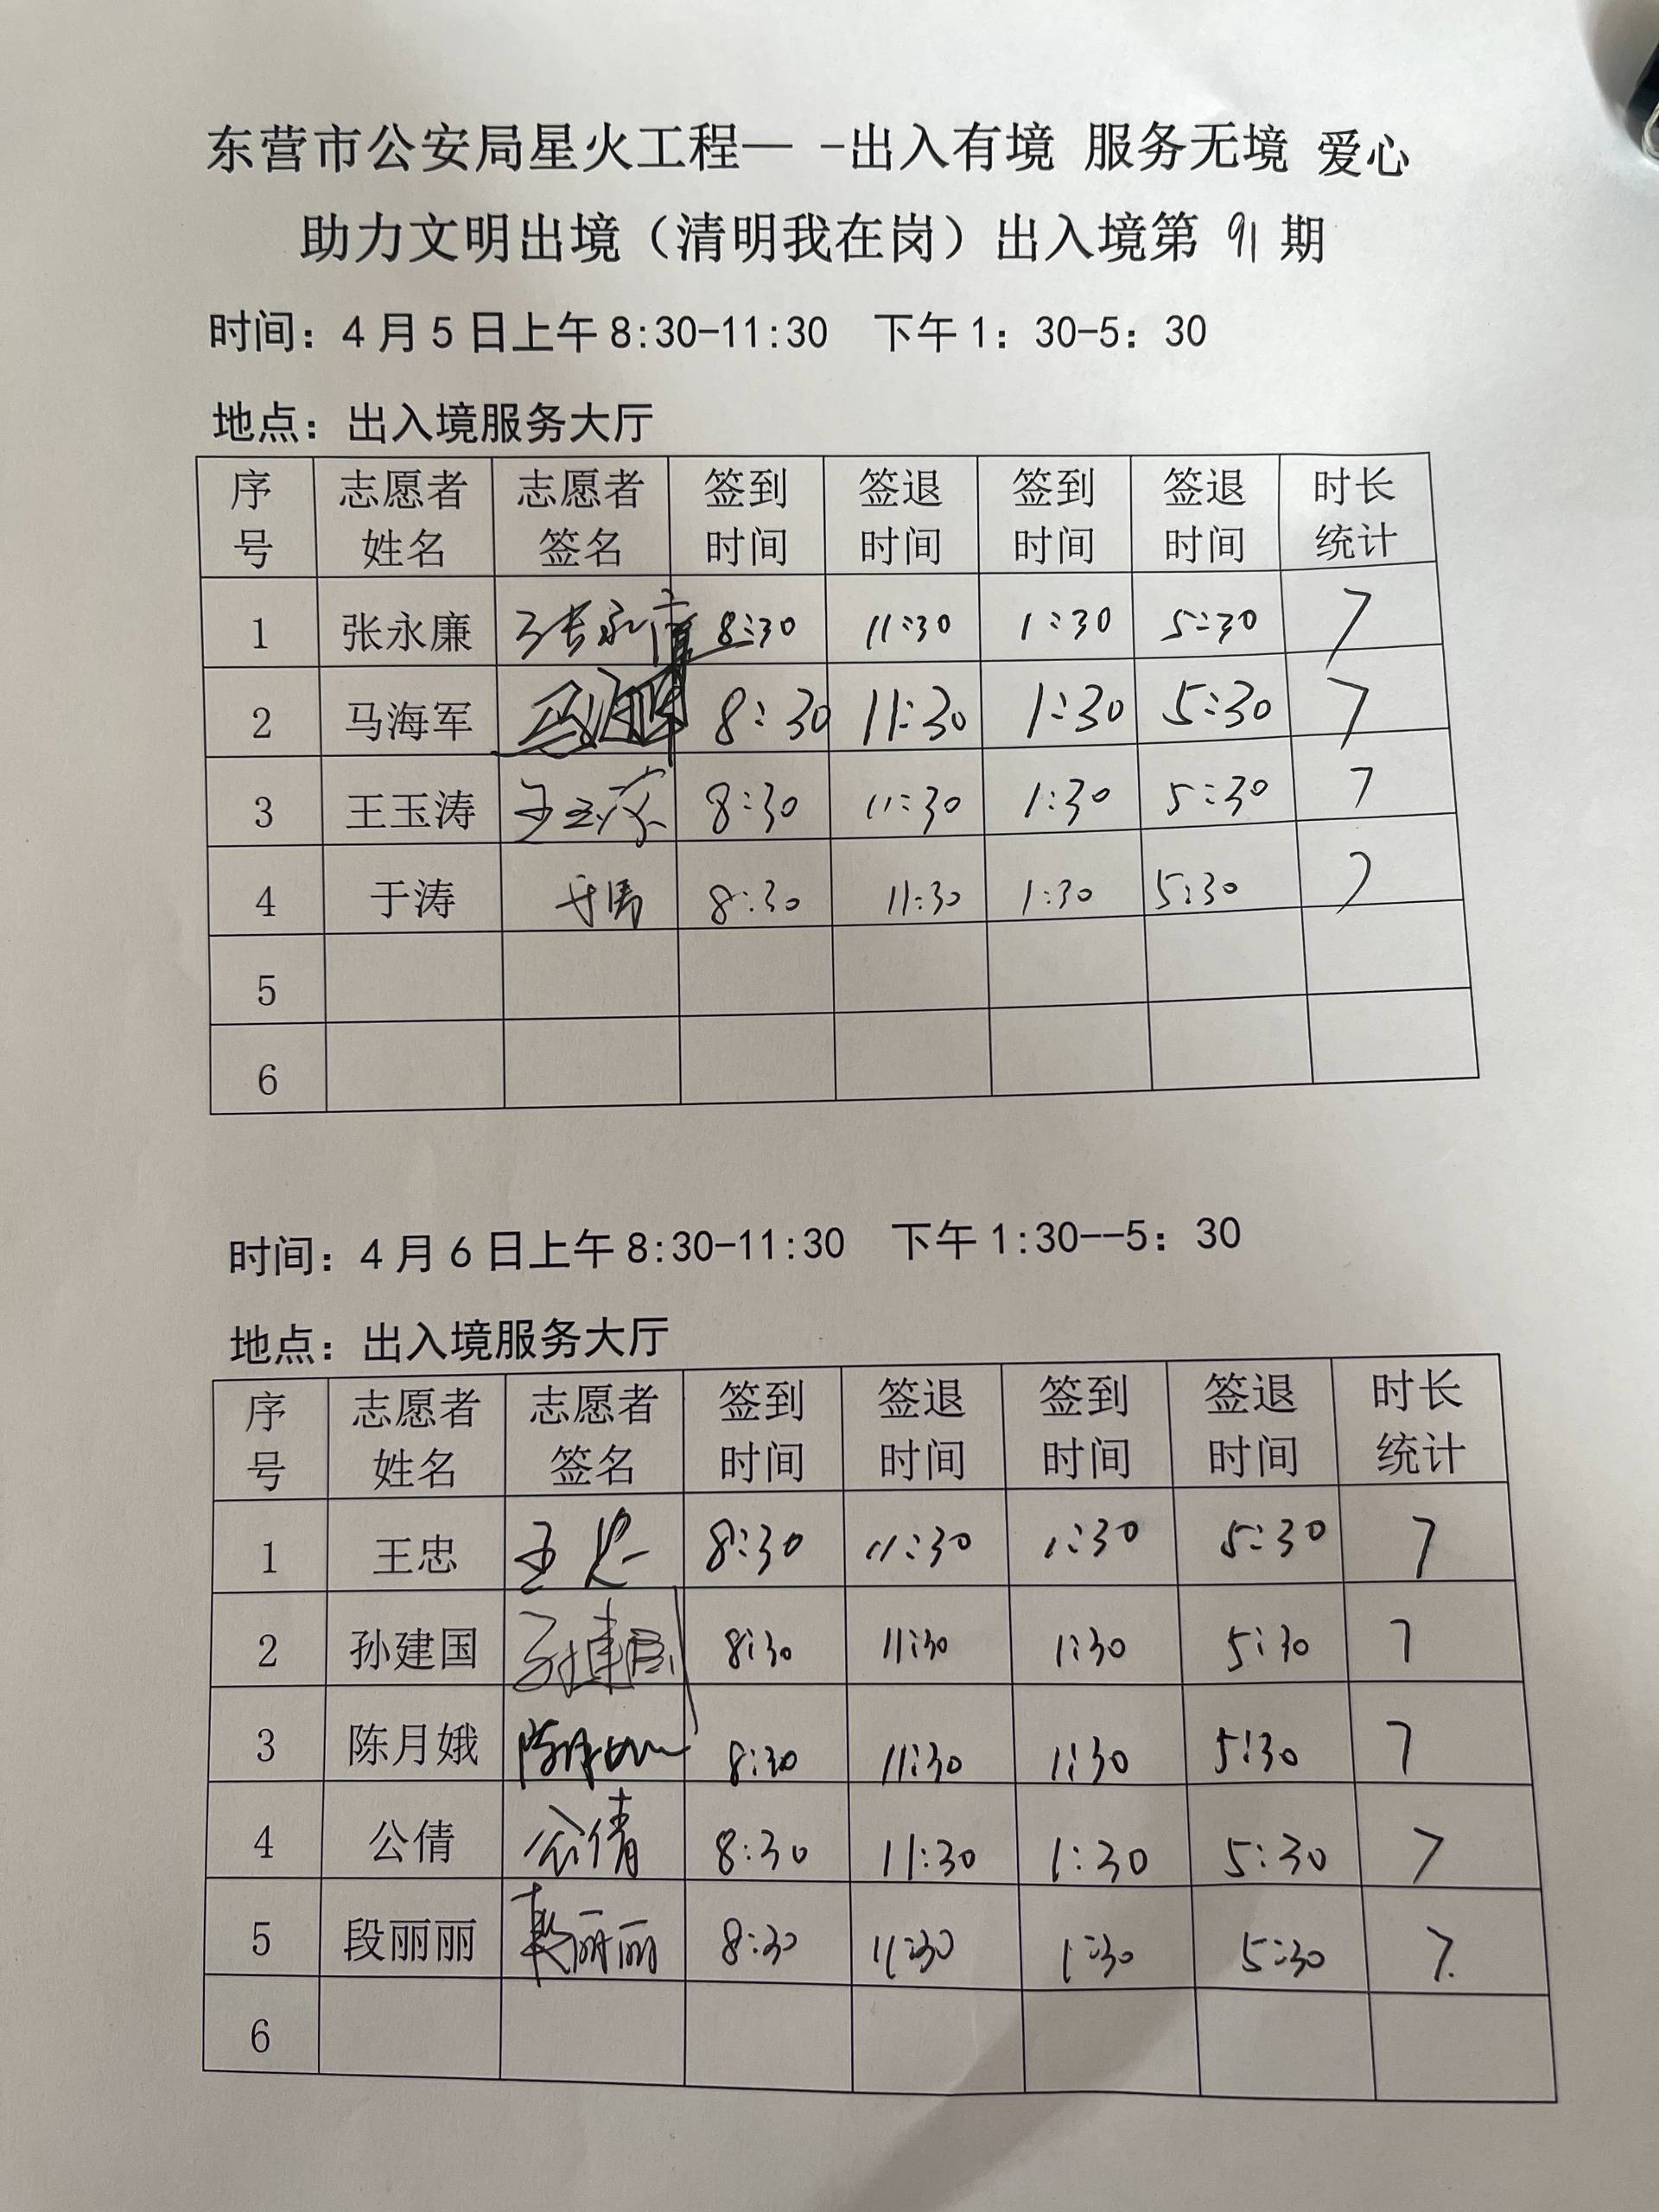 东营市公安局星火工程— -出入有境 服务无境 爱心
助力文明出境（清明我在岗）出入境第 91 期
时间：4月5日上午8:30-11:30 下午1：30-5：30
地点：出入境服务大厅
序号 志愿者姓名 志愿者签名 签到时间 签退时间 签到时间 签退时间 时长统计
1 张永廉 张永廉 8:30 11:30 1:30 5:30 7
2 马海军 马海军 8:30 11:30 1:30 5:30 7
3 王玉涛 王玉涛 8:30 11:30 1:30 5:30 7
4 于涛 于涛 8:30 11:30 1:30 5:30 7
5
6
时间：4月6日上午8:30-11:30 下午1:30--5：30
地点：出入境服务大厅
序号 志愿者姓名 志愿者签名 签到时间 签退时间 签到时间 签退时间 时长统计
1 王忠 王忠 8:30 11:30 1:30 5:30 7
2 孙建国 孙建国 8:30 11:30 1:30 5:30 7
3 陈月娥 陈月娥 8:30 11:30 1:30 5:30 7
4 公倩 公倩 8:30 11:30 1:30 5:30 7
5 段丽丽 段丽丽 8:30 11:30 1:30 5:30 7.
6